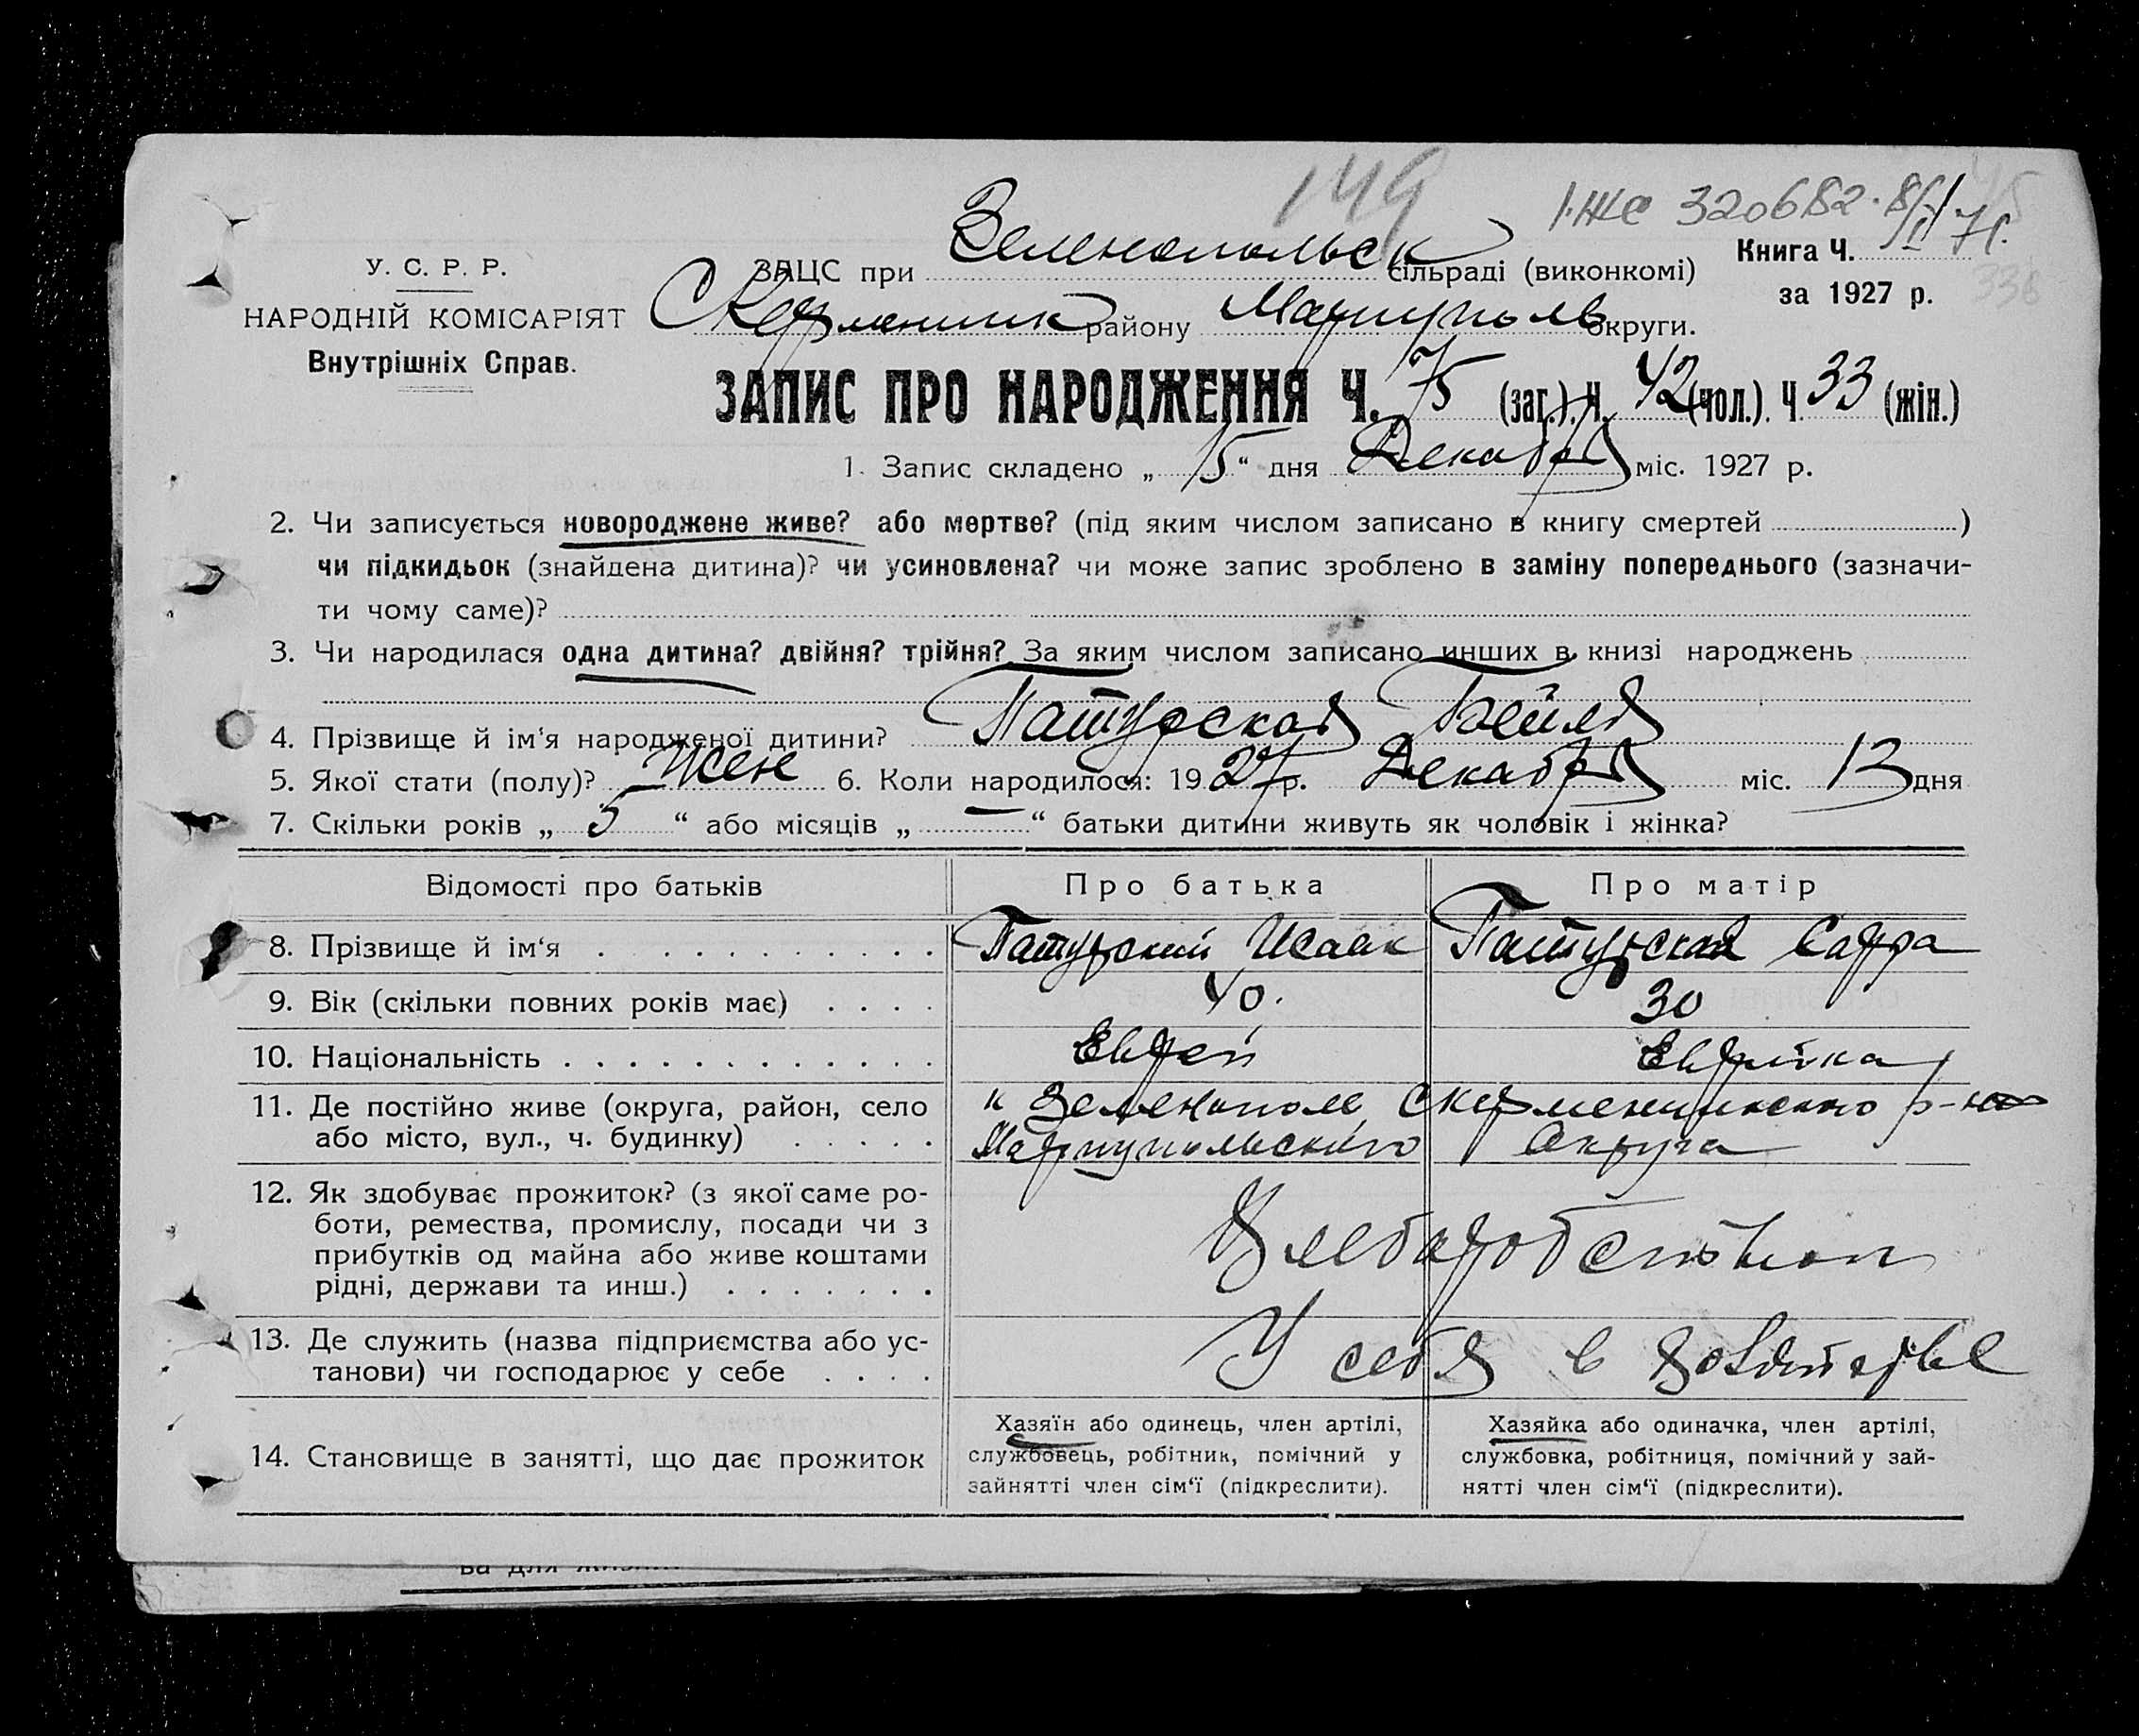 149
1.ЖС 320682
У. С. Р. Р.
НАРОДНІЙ КОМІСАРІЯТ
Внутрішніх Справ.
ЗАЦС при Зеленопольск сільраді (виконкомі)
Книга Ч.
за 1927 р.
336
району Мариуполь округи.
ЗАПИС ПРО НАРОДЖЕННЯ Ч. 75 (заг.). Ч. 42 (чол.). Ч. 33 (жін.)
1. Запис складено „ 15 “ дня Декабря міс. 1927 р.
2. Чи записується новороджене живе? або мертве? (під яким числом записано в книгу смертей )
чи підкидьок (знайдена дитина)? чи усиновлена? чи може запис зроблено в заміну попереднього (зазначи-
ти чому саме)?
3. Чи народилася одна дитина? двійня? трійня? За яким числом записано инших в книзі народжень
4. Прізвище й ім'я народженої дитини? Патурская Бейля
5. Якої стати (полу)? Жен 6. Коли народилося: 1927 р. Декабря міс. 13 дня
7. Скільки років „ 5 “ або місяців „ — “ батьки дитини живуть як чоловік і жінка?
Відомості про батьків Про батька Про матір
8. Прізвище й ім‘я Патурский Исаак Патурская Сарра
9. Вік (скільки повних років має) 40. 30
10. Національність Еврей Еврейка
11. Де постійно живе (округа, район, село к Зеленополе Скерменчикского р-на
або місто, вул., ч. будинку) Мариупольского Округа
12. Як здобуває прожиток? (з якої саме ро-
боти, ремества, промислу, посади чи з
прибутків од майна або живе коштами
рідні, держави та инш.) Хлебаробством
13. Де служить (назва підприємства або ус-
танови) чи господарює у себе У себя в
14. Становище в занятті, що дає прожиток
Хазяїн або одинець, член артілі,
службовець, робітник, помічний у
зайнятті член сім‘ї (підкреслити).
Хазяйка або одиначка, член артілі,
службовка, робітниця, помічний у зай-
нятті член сім‘ї (підкреслити).